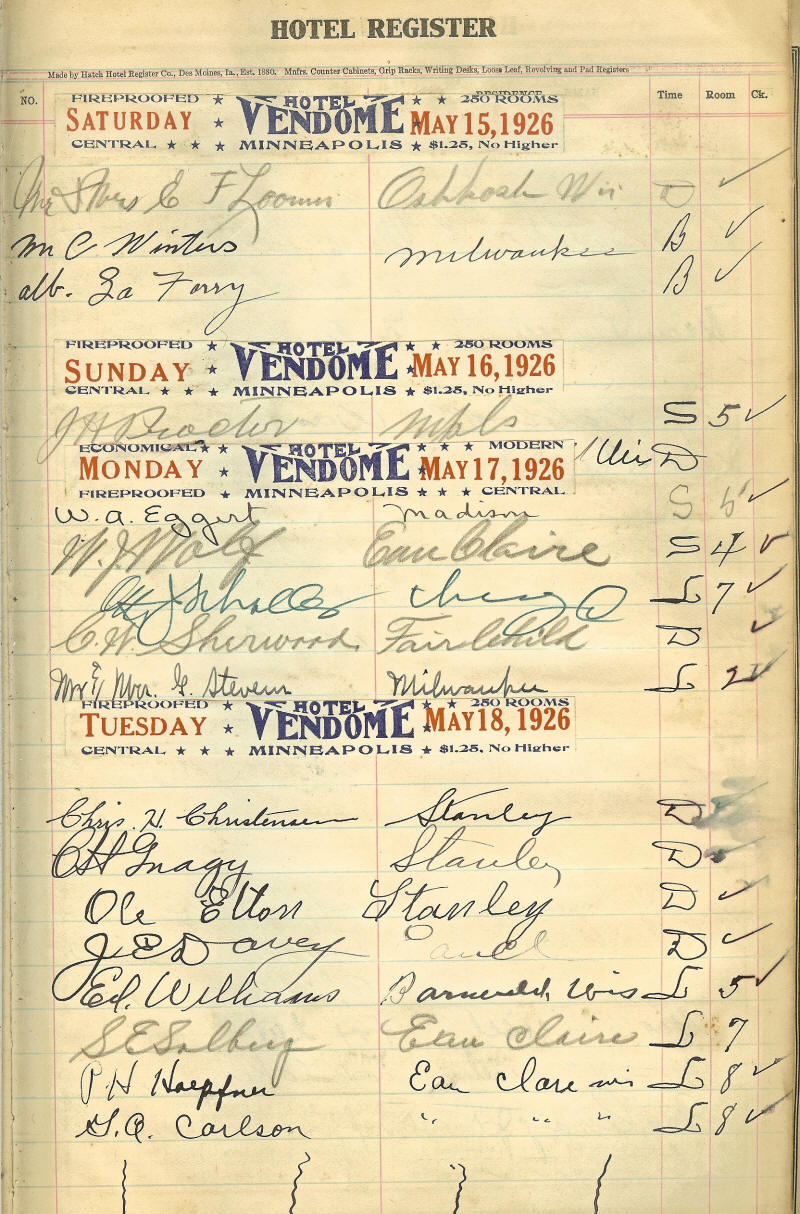 HOTEL REGISTER
Made by Hatch Hotel Register Co., Des Moines, Ia., Est. 1880. Mnfrs. Counter Cabinets, Grip Racks, Writing Desks, Loose Leaf, Revolving and Pad Registers
NO. RESIDENCE Time Room Ck.
FIREPROOFED ★ HOTEL ★ ★ 250 ROOMS
SATURDAY ★ VENDOME ★ MAY 15, 1926
CENTRAL ★ ★ ★ MINNEAPOLIS ★ $1.25, No Higher
Mr & Mrs C F Loomis Oshkosh Wis D ✓
M C Winters Milwaukee B ✓
Alb. La Forry B ✓
FIREPROOFED ★ HOTEL ★ ★ 250 ROOMS
SUNDAY ★ VENDOME ★ MAY 16, 1926
CENTRAL ★ ★ ★ MINNEAPOLIS ★ $1.25, No Higher
J H Procter Mpls S 5 ✓
ECONOMICAL ★ ★ HOTEL ★ ★ MODERN
MONDAY ★ VENDOME ★ MAY 17, 1926 Wis D
FIREPROOFED ★ MINNEAPOLIS ★ ★ CENTRAL
W. A. Eggert Madison S 5 ✓
W. J. Wolf Eau Claire S 4 ✓
Chicago L 7 ✓
C. W. Sherwood Fairchild D ✓
Mr & Mrs. G. Stevens Milwaukee L 2 ✓
FIREPROOFED ★ HOTEL ★ ★ 250 ROOMS
TUESDAY ★ VENDOME ★ MAY 18, 1926
CENTRAL ★ ★ ★ MINNEAPOLIS ★ $1.25, No Higher
Chris. H. Christensen Stanley D
C H Gnagy Stanley D
Ole Elton Stanley D ✓
J E Davey D ✓
Ed. Williams Barneveld, Wis L 5 ✓
S E Solberg Eau Claire L 7
P H Hoepfner Eau Clare Wi L 8 ✓
G. A. Carlson " " " L 8 ✓